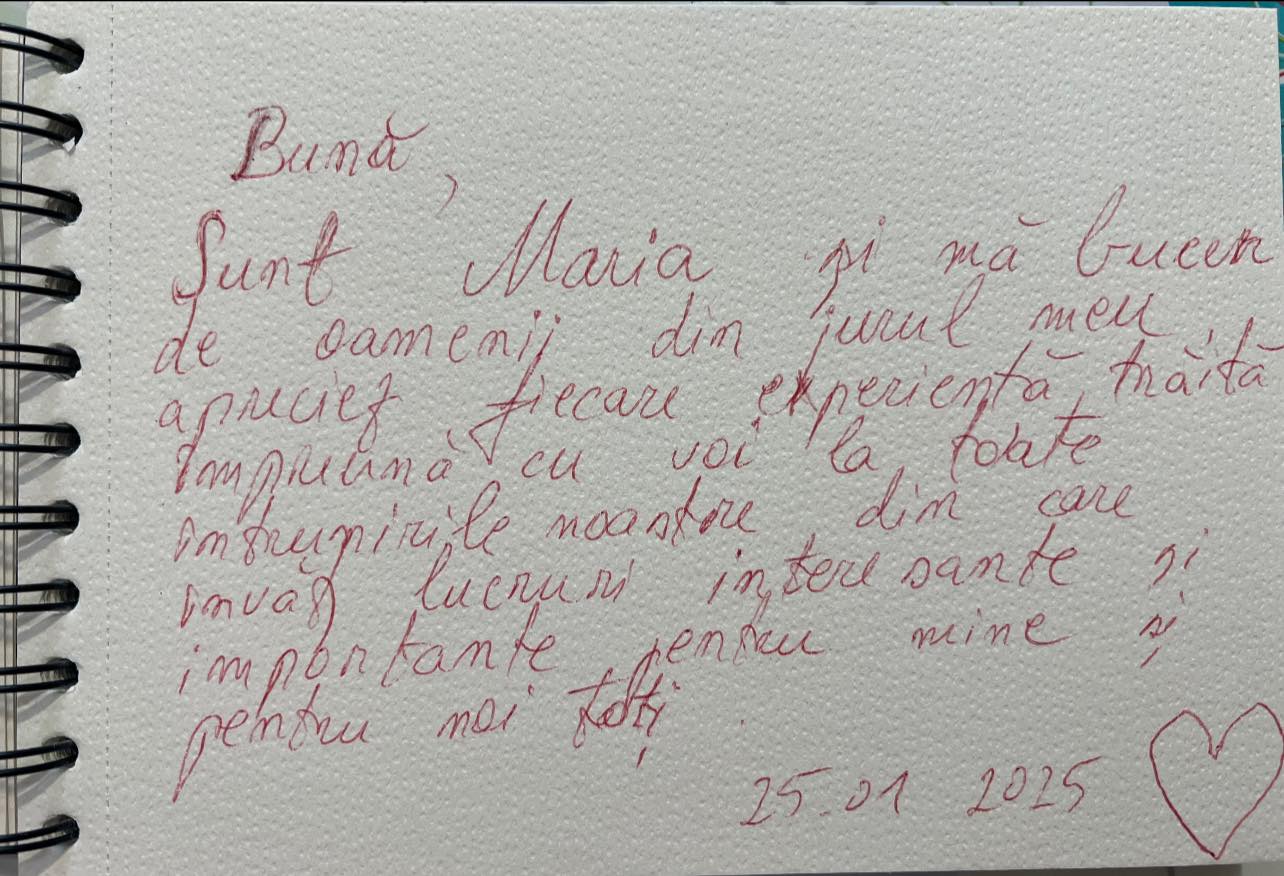 Bună,
Sunt Maria și mă bucur
de oamenii din jurul meu,
apreciez fiecare experiență trăită
împreună cu voi la toate
întrunirile noastre, din care
învăț lucruri interesante și
importante pentru mine și
pentru noi toți.
25.01 2025